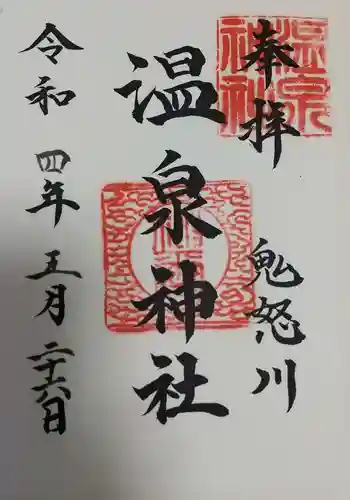 奉拝
鬼怒川
温泉神社
令和四年五月二十六日
温泉神社